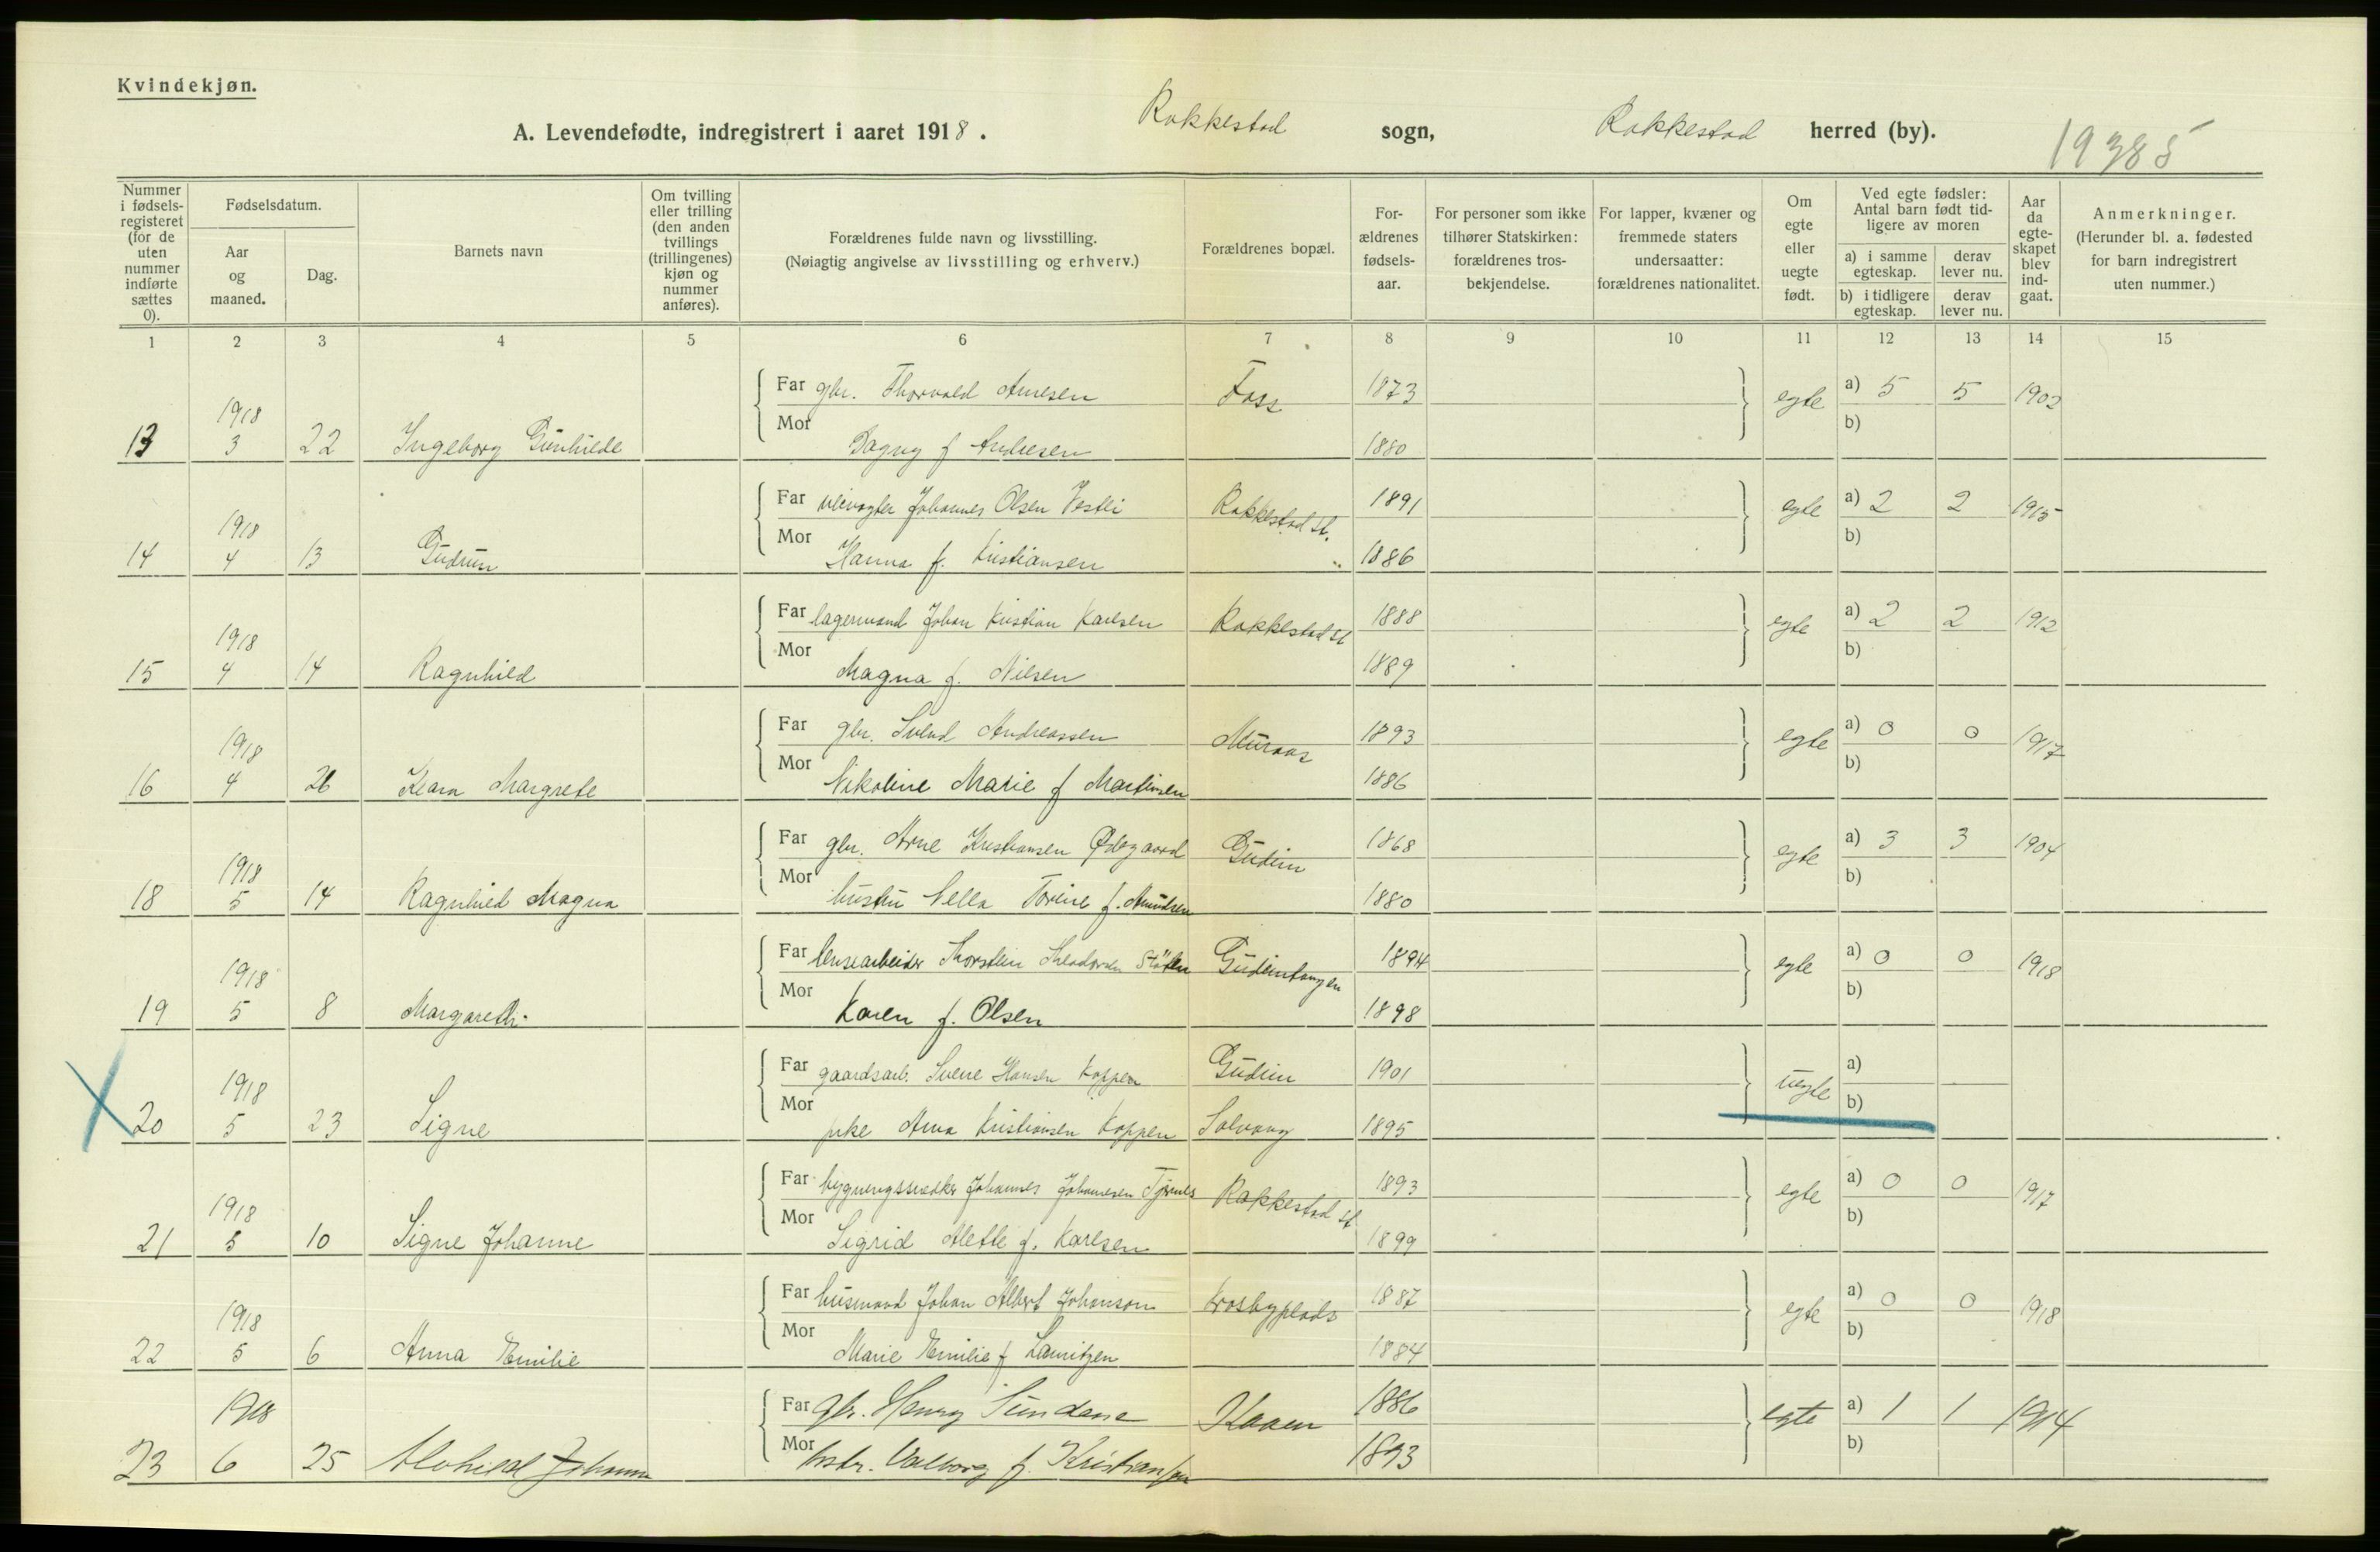 Kvindekjøn.
A. Levendefødte, indregistrert i aaret 1918. Rakkestad sogn, Rakkestad herred (by).
19385
Nummer i fødselsregisteret (for de uten nummer indførte sættes 0).
Fødselsdatum.
Aar og maaned.
Dag.
Barnets navn
Om tvilling eller trilling (den anden tvillings (trillingenes) kjøn og nummer anføres).
Forældrenes fulde navn og livsstilling.
(Nøiagtig angivelse av livsstilling og erhverv.)
Forældrenes bopæl.
Forældrenes fødselsaar.
For personer som ikke tilhører Statskirken: forældrenes trosbekjendelse.
For lapper, kvæner og fremmede staters undersaatter: forældrenes nationalitet.
Om egte eller uegte født.
Ved egte fødsler: Antal barn født tidligere av moren
a) i samme egteskap.
derav lever nu.
b) i tidligere egteskap.
derav lever nu.
Aar da egteskapet blev indgaat.
Anmerkninger.
(Herunder bl. a. fødested for barn indregistrert uten nummer.)
1 2 3 4 5 6 7 8 9 10 11 12 13 14 15
Far gbr. Thorvald Arnesen Foss 1873 egte a) 5 5 1902
13 1918 3 22 Ingeborg Gunhilde Mor Dagny f Andresen 1880 b)
Far veivogter Johannes Olsen Vestli Rakkestad st. 1891 egte a) 2 2 1915
14 1918 4 13 Gudrun Mor Hanna f. Kristiansen " 1886 b)
Far lagermand Johan Kristian Karlsen Rakkestad st 1888 egte a) 2 2 1912
15 1918 4 14 Ragnhild Mor Magna f. Nilsen 1889 b)
Far gbr. Svend Andreassen 1893 egte a) 0 0 1917
16 1918 4 26 Klara Margrete Mor Nikoline Marie f Martinsen 1886 b)
Far gbr. Arne Kristiansen Ødegaard Gudim 1868 egte a) 3 3 1904
18 1918 5 14 Ragnhild Magna Mor hustru Nella Torine f. Amundsen 1880 b)
Far lensearbeider Thorstein Theodorsen Gudimtangen 1894 egte a) 0 0 1918
19 1918 5 8 Margareth Mor Karen f. Olsen 1898 b)
Far gaardsarb. Sverre Hansen Koppen Gudim 1901 uegte a)
20 1918 5 23 Signe Mor pike Anna Kristiansen Koppen Solvang 1895 b)
Far bygningssnedker Johannes Johannesen Rakkestad st 1893 egte a) 0 0 1917
21 1918 5 10 Signe Johanne Mor Sigrid Alette f. Karlsen 1899 b)
Far husmand Johan Albert Johanson Krosbyplads 1887 egte a) 0 0 1918
22 1918 5 6 Anna Emilie Mor Marie Emilie f Lauritzen 1884 b)
Far gbr. Henry Sundene Kaaen 1886 egte a) 1 1 1914
23 1918 6 25 Alvhild Johanne Mor hstr. Valborg f. Kristiansen 1893 b)